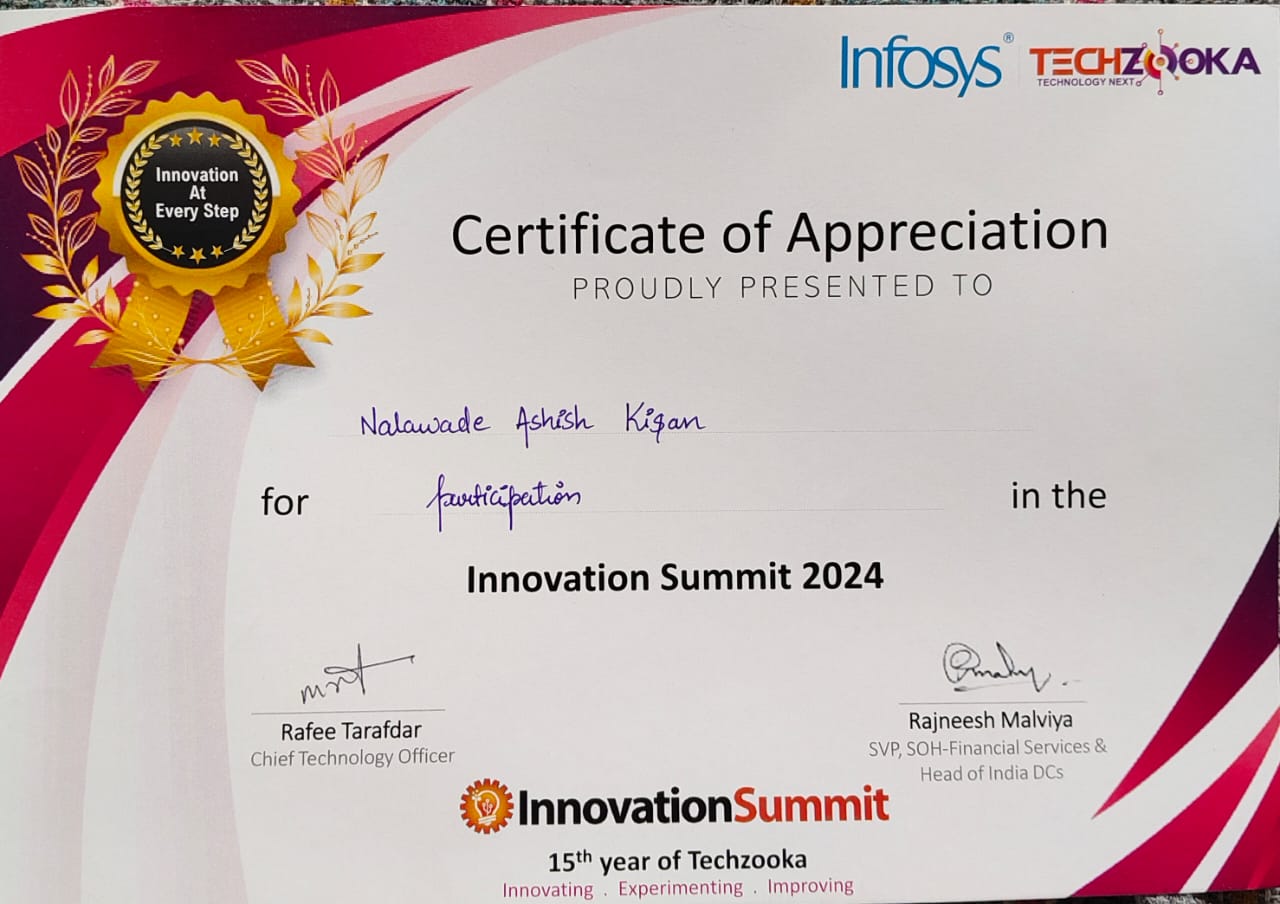 Infosys®
TECHZOOKA
TECHNOLOGY NEXT
Innovation
At
Every Step
Certificate of Appreciation
PROUDLY PRESENTED TO
Nalawade Ashish Kiran
for participation in the
Innovation Summit 2024
Rafee Tarafdar
Chief Technology Officer
Rajneesh Malviya
SVP, SOH-Financial Services &
Head of India DCs
InnovationSummit
15th year of Techzooka
Innovating . Experimenting . Improving